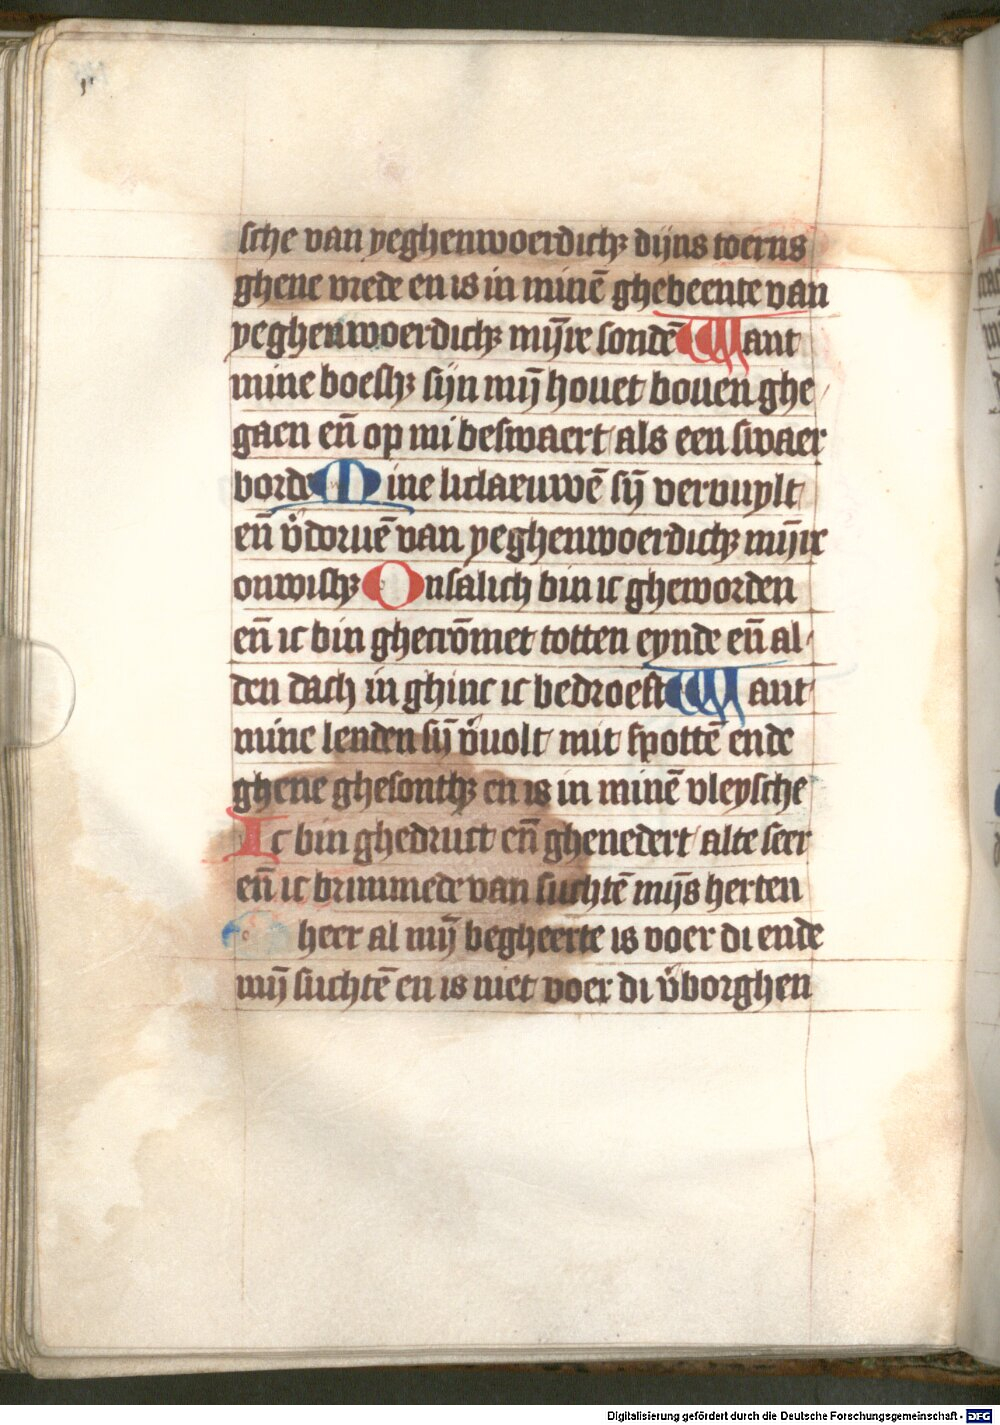 sche van yeghenwoerdichꝫ dijns toerns
ghene vrede en is in minē ghebeente van
yeghenwoerdichꝫ mȳre sondē Want
mine boeshꝫ sijn mȳ houet bouen ghe
gaen eñ op mi beswaert als een swaer
borde Mine liclaeuwē sȳ vervuylt
eñ v̊doruē van yeghenwoerdichꝫ mȳre
onwishꝫ Onsalich bin ic gheworden
eñ ic bin ghecrōmet totten eynde eñ al
den dach in ghinc ic bedroeft Want
mine lenden sȳ v̊uolt mit spottē ende
ghene ghesonthꝫ en is in minē vleysche
Ic bin ghedruct eñ ghenedert alte seer
eñ ic brimmede van suchtē mijs herten
heer al mȳ begheerte is voer di ende
mȳ suchtē en is niet voer di v̊borghen
Digitalisierung gefördert durch die Deutsche Forschungsgemeinschaft - DFG